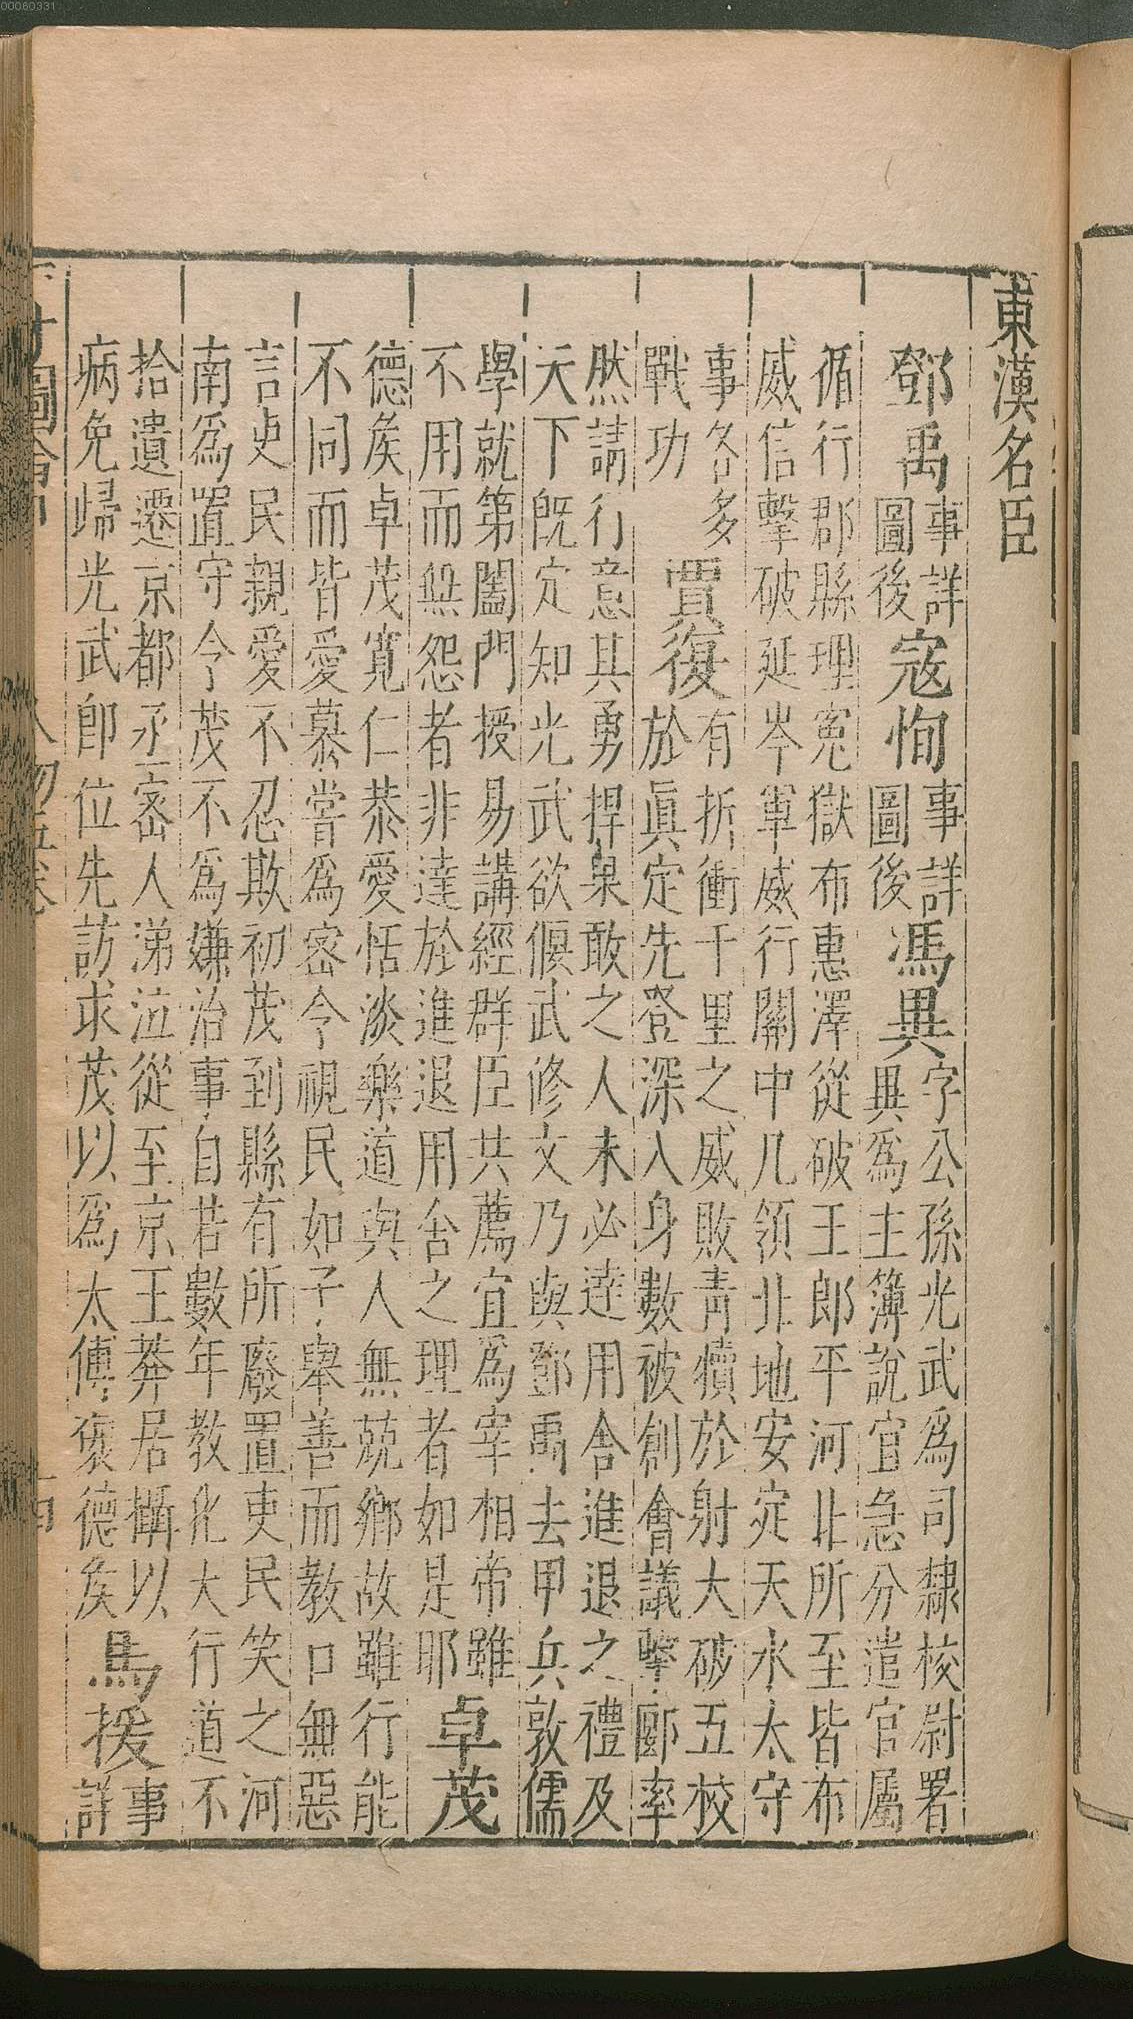 00060331
東漢名臣
鄧禹事詳圖後寇恂事詳圖後馮異字公孫光武爲司隸校尉署異爲主簿說宜急分遣官屬
循行郡縣理冤獄布惠澤從破王郎平河北所至皆布
威信擊破延岑軍威行關中凡領北地安定天水太守
事名多戰功賈復有折衝千里之威敗青犢於射犬破五校於眞定先登深入身數被創會議擊郾率
然請行意其勇捍果敢之人未必達用舍進退之禮及
天下旣定知光武欲偃武修文乃與鄧禹去甲兵敦儒
學就第闔門授易講經群臣共薦宜爲宰相帝雖
不用而無怨者非達於進退用舍之理者如是耶卓茂
德矦卓茂寬仁恭愛恬淡樂道與人無兢鄉故雖行能
不同而皆愛慕嘗爲密令視民如子舉善而教口無惡
言吏民親愛不忍欺初茂到縣有所廢置吏民笑之河
南爲置守令茂不爲嫌治事自若數年教化大行道不
拾遺遷京都丞密人涕泣從至京王莽居攝以
病免歸光武卽位先訪求茂以爲太傅褒德矦馬援事詳
圖會
人物五卷
十四